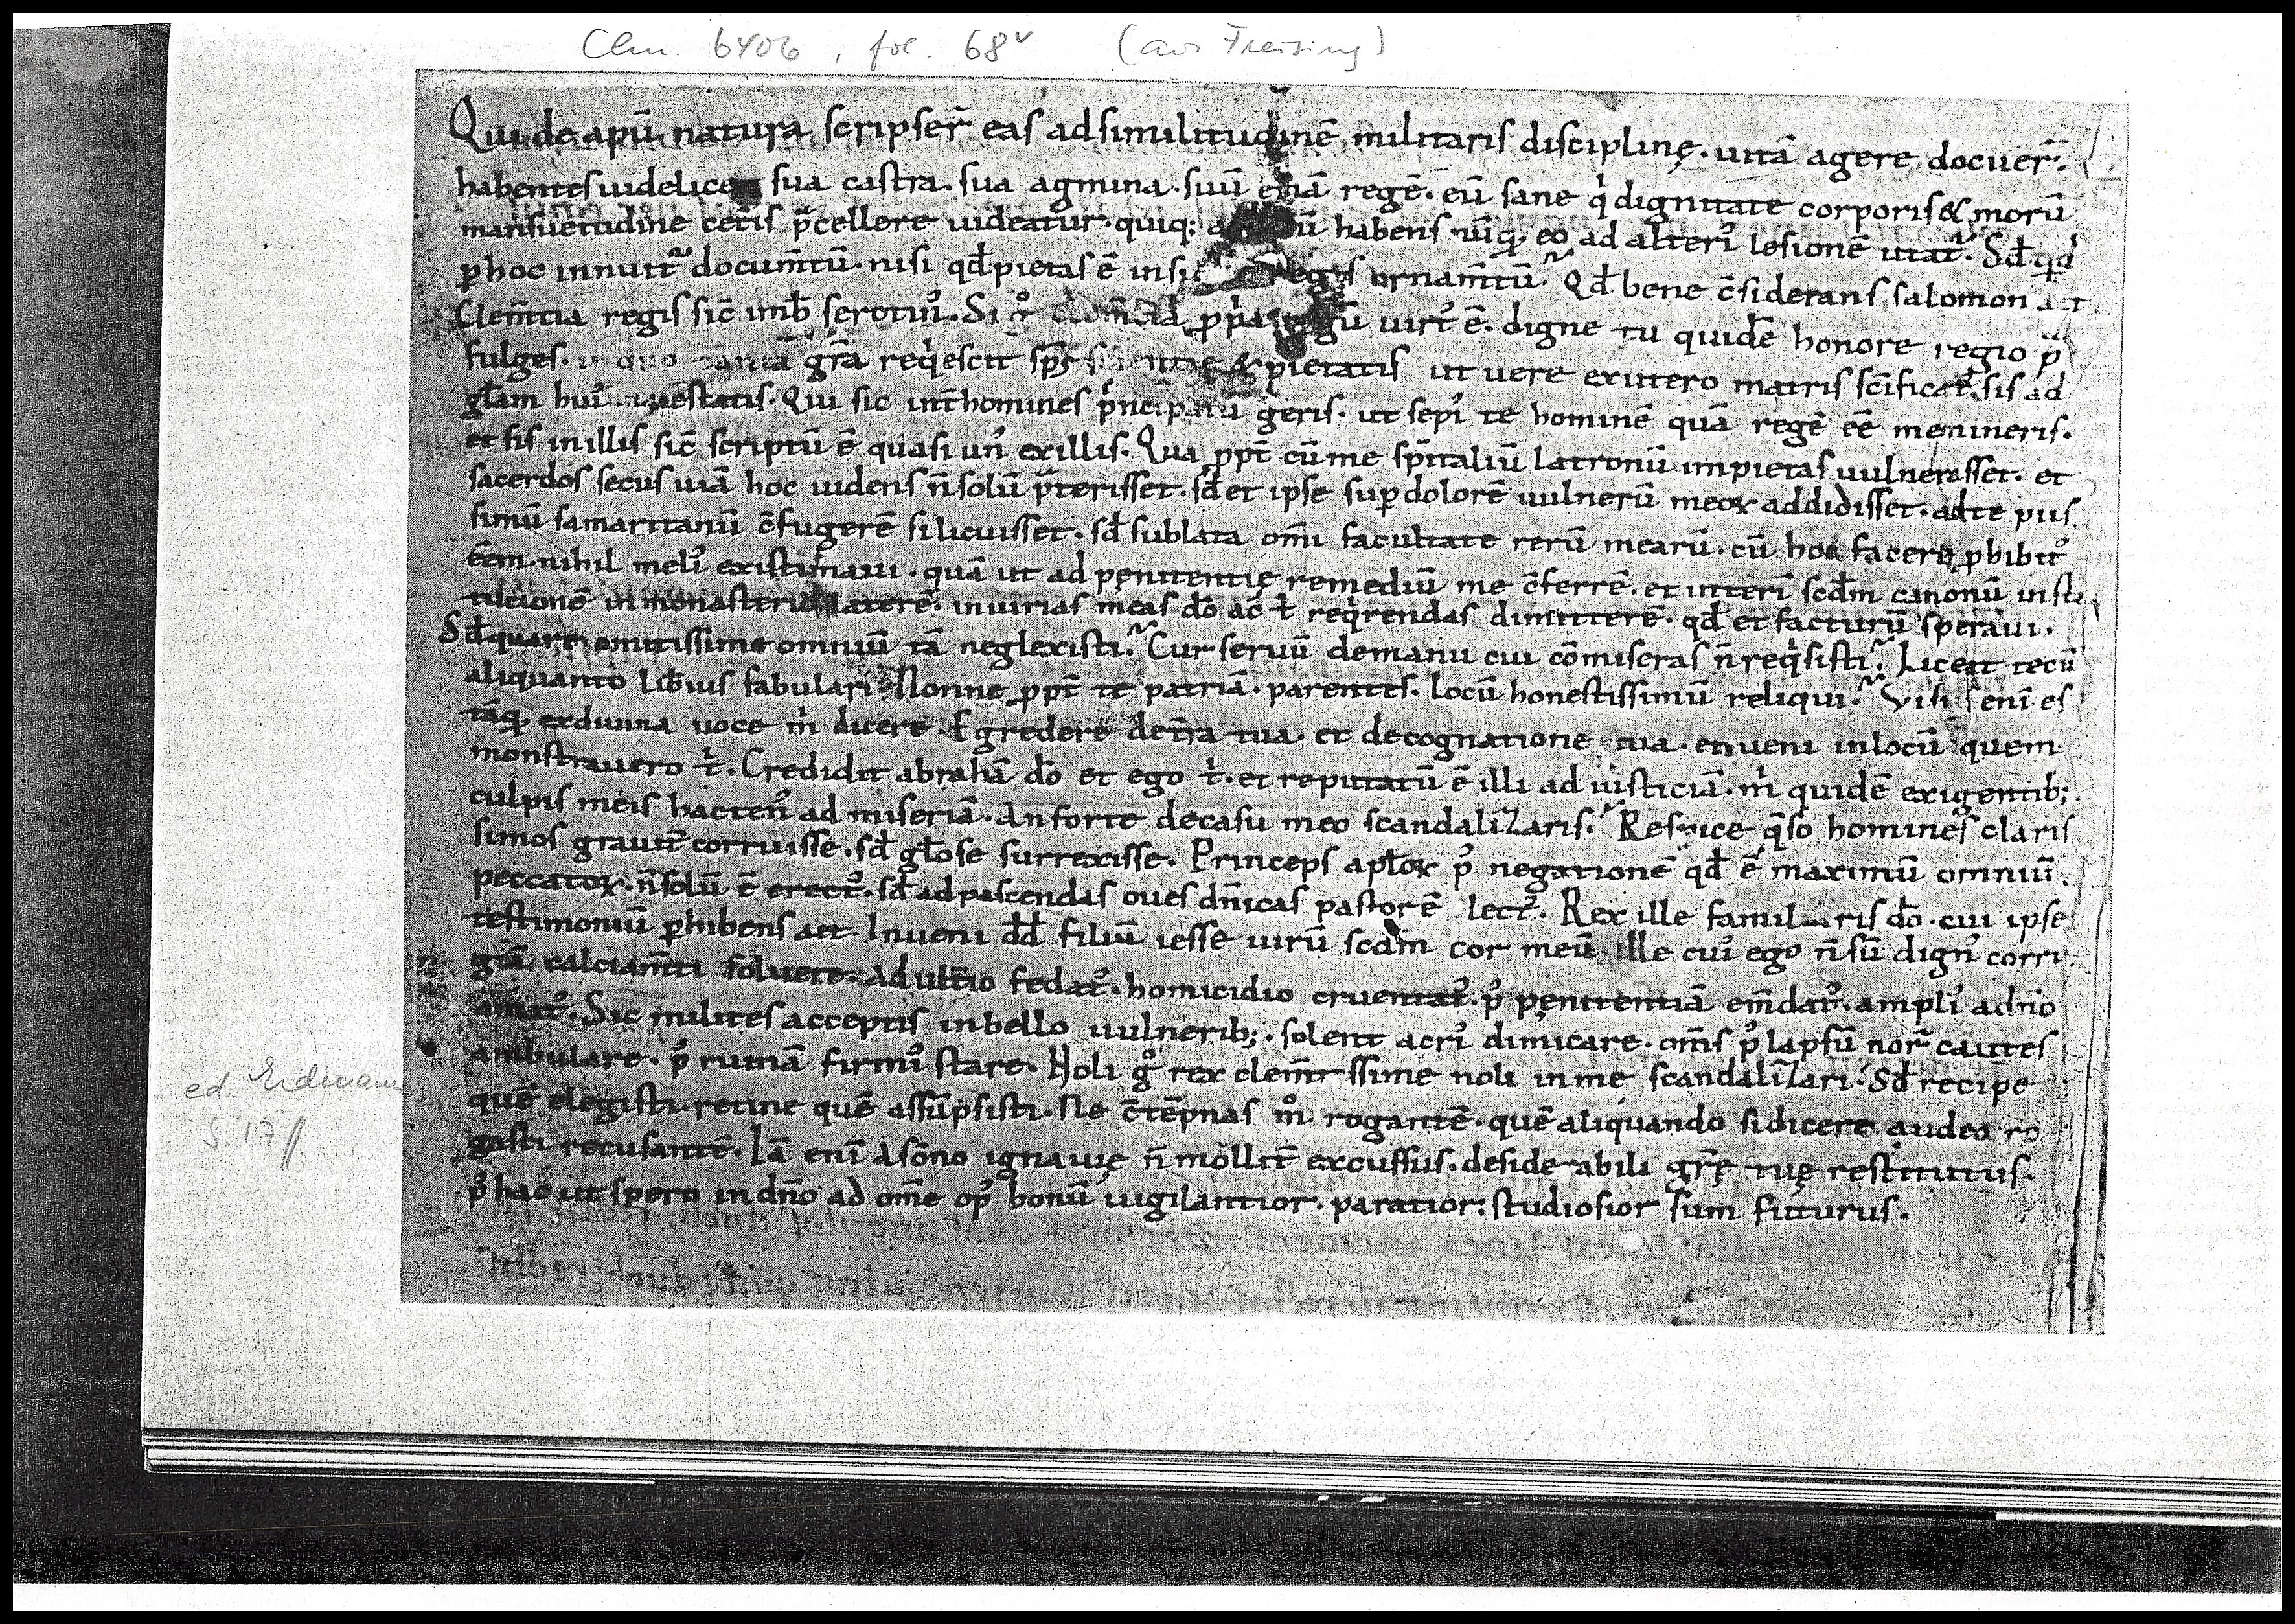 Clm. 6406, fol. 68v (aus Freising)
Qui de apū natura scripser̄ eas ad similitudinē militaris discipline. uitā agere docuer̄.
habentes uidelicet sua castra. sua agmina. suū etiā regē. eū sane qi dignitate corporis & morū
mansuetudine cet̄is p̄cellere uideatur. quiq; habens nūq. eo ad alteri9 lesionē utat᷑. Sđ qid
ꝑ hoc innuit᷑ docum̄tū. nisi qđ pietas ē regis ornam̄tū? Qđ bene c̄siderans salomon ait
Clem̄tia regis sic̄ imb̄ serotin9. Si gͦ clem̄tia ꝓpria regū uirt9 ē. digne tu quidē honore regio p̄
fulges. in quo tanta gr̄a reqiescit sp̄s & pietatis ut uere ex utero matris sc̄ificat9 sis ad
gl̄am hui9 Qui sic int̄ homines pincipatū geris. ut sepi9 te hominē quā regē eē memineris.
et sis in illis sic̄ scriptū ē quasi un9 ex illis. Qua ꝓpt̄ cū me sp̄italiū latronū impietas uulnerasset. et
sacerdos secus uiā hoc uidens n̄ solū p̄terisset. sđ et ipse suꝑ dolorē uulnerū meoꝝ addidisset. ad te piis
simū samaritanū c̄fugerē si licuisset. sđ sublata om̄i facultate rerū mearū. cū hoc facere ꝓhibit9
eēm. nihil meli9 existimaui. quā ut ad penitentie remediū me c̄ferrē. et interī scđm canonū insti
tucionē in monasterio laterē. iniurias meas đo ac t̄ reqirendas dimitterē. qđ et facturū speraui.
Sđ quare o mitissime omniū tā neglexisti? Cur seruū de manu cui cōmiseras n̄ reqisisti? Liceat tecū
aliquanto lib̄ius fabulari. Nonne ꝓpt̄ te patriā. parentes. locū honestissimū reliqui? Visus enī es
tāq. ex diuina uoce mi dicere. Egredere de t̄ra tua. et de cognatione tua. et ueni in locū quem
monstrauero ti. Credidit abrahā đo et ego ti. et reputatū ē illi ad iusticiā. mi quidē exigentib;
culpis meis hacten9 ad miseriā. An forte de casu meo scandalizaris? Respice q̄so homines claris
simos grauit̄ corruisse. sđ gl̄ose surrexisse. Princeps apl̄oꝝ p9 negationē qđ ē maximū omniū
peccatoꝝ. n̄ solū ē erect9. sđ ad pascendas oues dn̄icas pastorē lect9. Rex ille familiaris đo. cui ipse
testimoniū ꝑhibens ait. Inueni dđ filiū iesse uirū scđm cor meū. ille cui9 ego n̄ sū dign9 corri
giā calciam̄ti soluere. adult̄io fedat᷑. homicidio cruentat᷑. p9 penitentiā em̄dat᷑. ampli9 a dn̄o
amat᷑. Sic milites acceptis in bello uulnerib;. solent acri9 dimicare. om̄s p9 lapsū nor̄ cautes
ambulare. p9 ruinā firmi9 stare. Noli gͦ rex clem̄tissime noli in me scandalizari. Sđ recipe
quē elegisti. retine quē assūpsisti. Ne c̄tēpnas mͦ rogantē. quē aliquando si dicere audeo ro
gasti recusantē. Iā enī a sōno ignauie n̄ mollit̄ excussus. desiderabili gr̄e tue restitutus.
p9 hac ut spero in dn̄o ad om̄e op9 bonū uigilantior. paratior. studiosior sum futurus.
ed. Erdmann
S. 17 ff